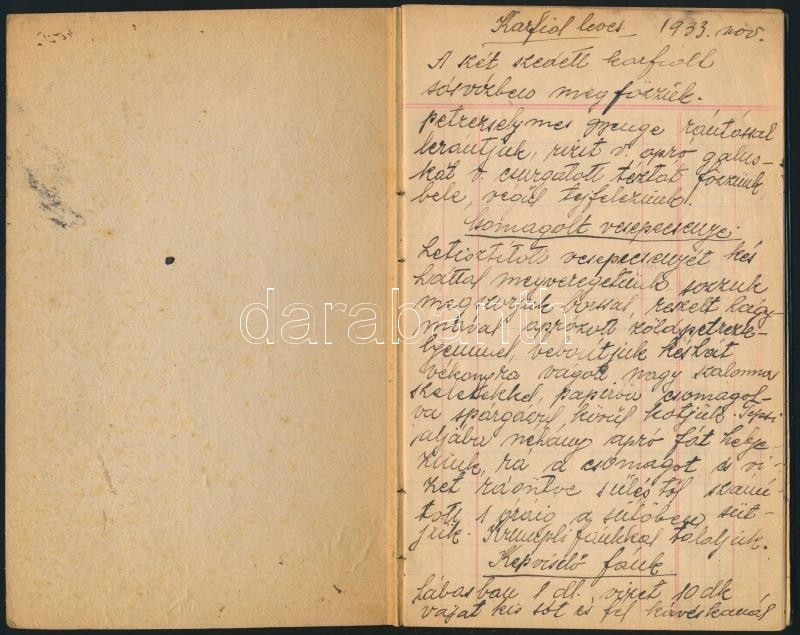 Karfiol leves 1933. nov.
A két szedett karfiolt
sósvízben megfőzzük.
petrezselymes gyenge rántással
berántjuk, rizst v. apró galus-
kát v. csurgatott tésztát főzünk
bele, végül tejfelezzük.
Csomagolt vesepecsenye.
Letisztított vesepecsenyét kés
háttal megveregetünk sózzuk
megszórjuk borssal, reszelt hagy-
mával, aprózott zöldpetrezse-
lyemmel, beborítjuk késhát
vékonyra vágott nagy szalonna
szeletekkel, papírba csomagol-
va spárgával, körül kötjük. Tepsi
aljába néhány apró fát helye-
zünk, rá a csomagot és vi-
zet ráöntve süléstől számí-
tott 1 óráig a sütőben süt-
jük. Krumplifánkkal tálaljuk.
Képviselő fánk
Lábasban 1 dl. vizet 10 dk
vajat kis sót és fél kávéskanál
darabanth